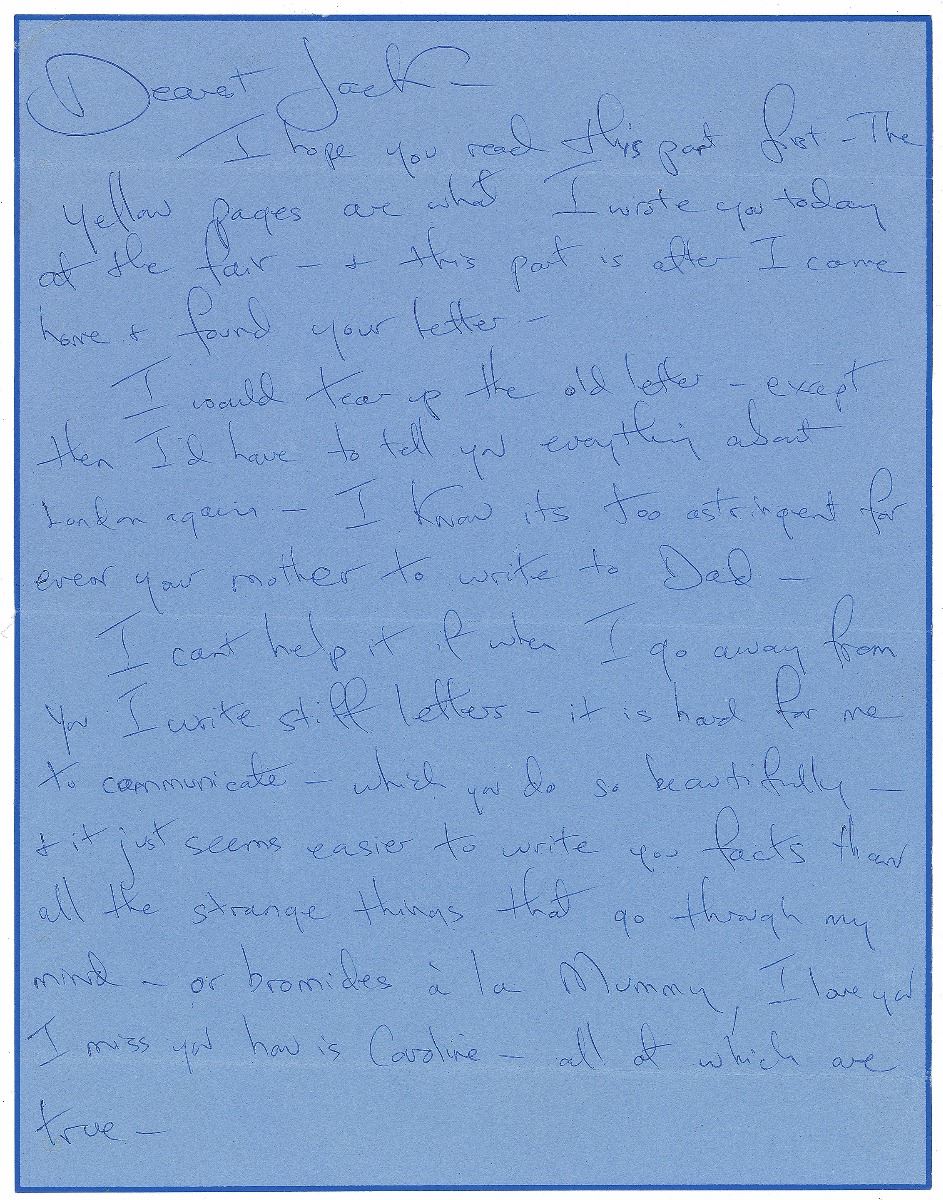 Dearest Jack —
I hope you read this part first — The
yellow pages are what I wrote you today
at the fair — + this part is after I came
home + found your letter —
I would tear up the old letter — except
then I'd have to tell you everything about
London again — I know its too astringent for
even your mother to write to Dad —
I cant help it if when I go away from
you I write stiff letters — it is hard for me
to communicate — which you do so beautifully —
+ it just seems easier to write you facts than
all the strange things that go through my
mind — or bromides à la Mummy, I love you
I miss you how is Caroline — all of which are
true —